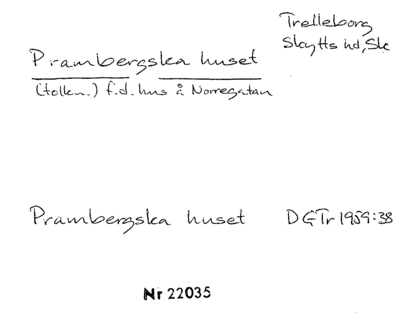 Trelleborg
Skytts hd, Sk
Prambergska huset
(tolkn.) f.d. hus å Norregatan
Prambergska huset DGTr 1959:38
Nr 22035